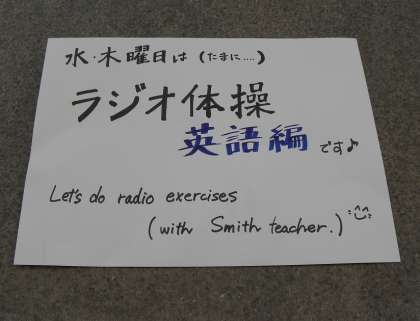 水・木曜日は（たまに‥‥）
ラジオ体操
英語編です♪
Let's do radio exercises
(with Smith teacher.)